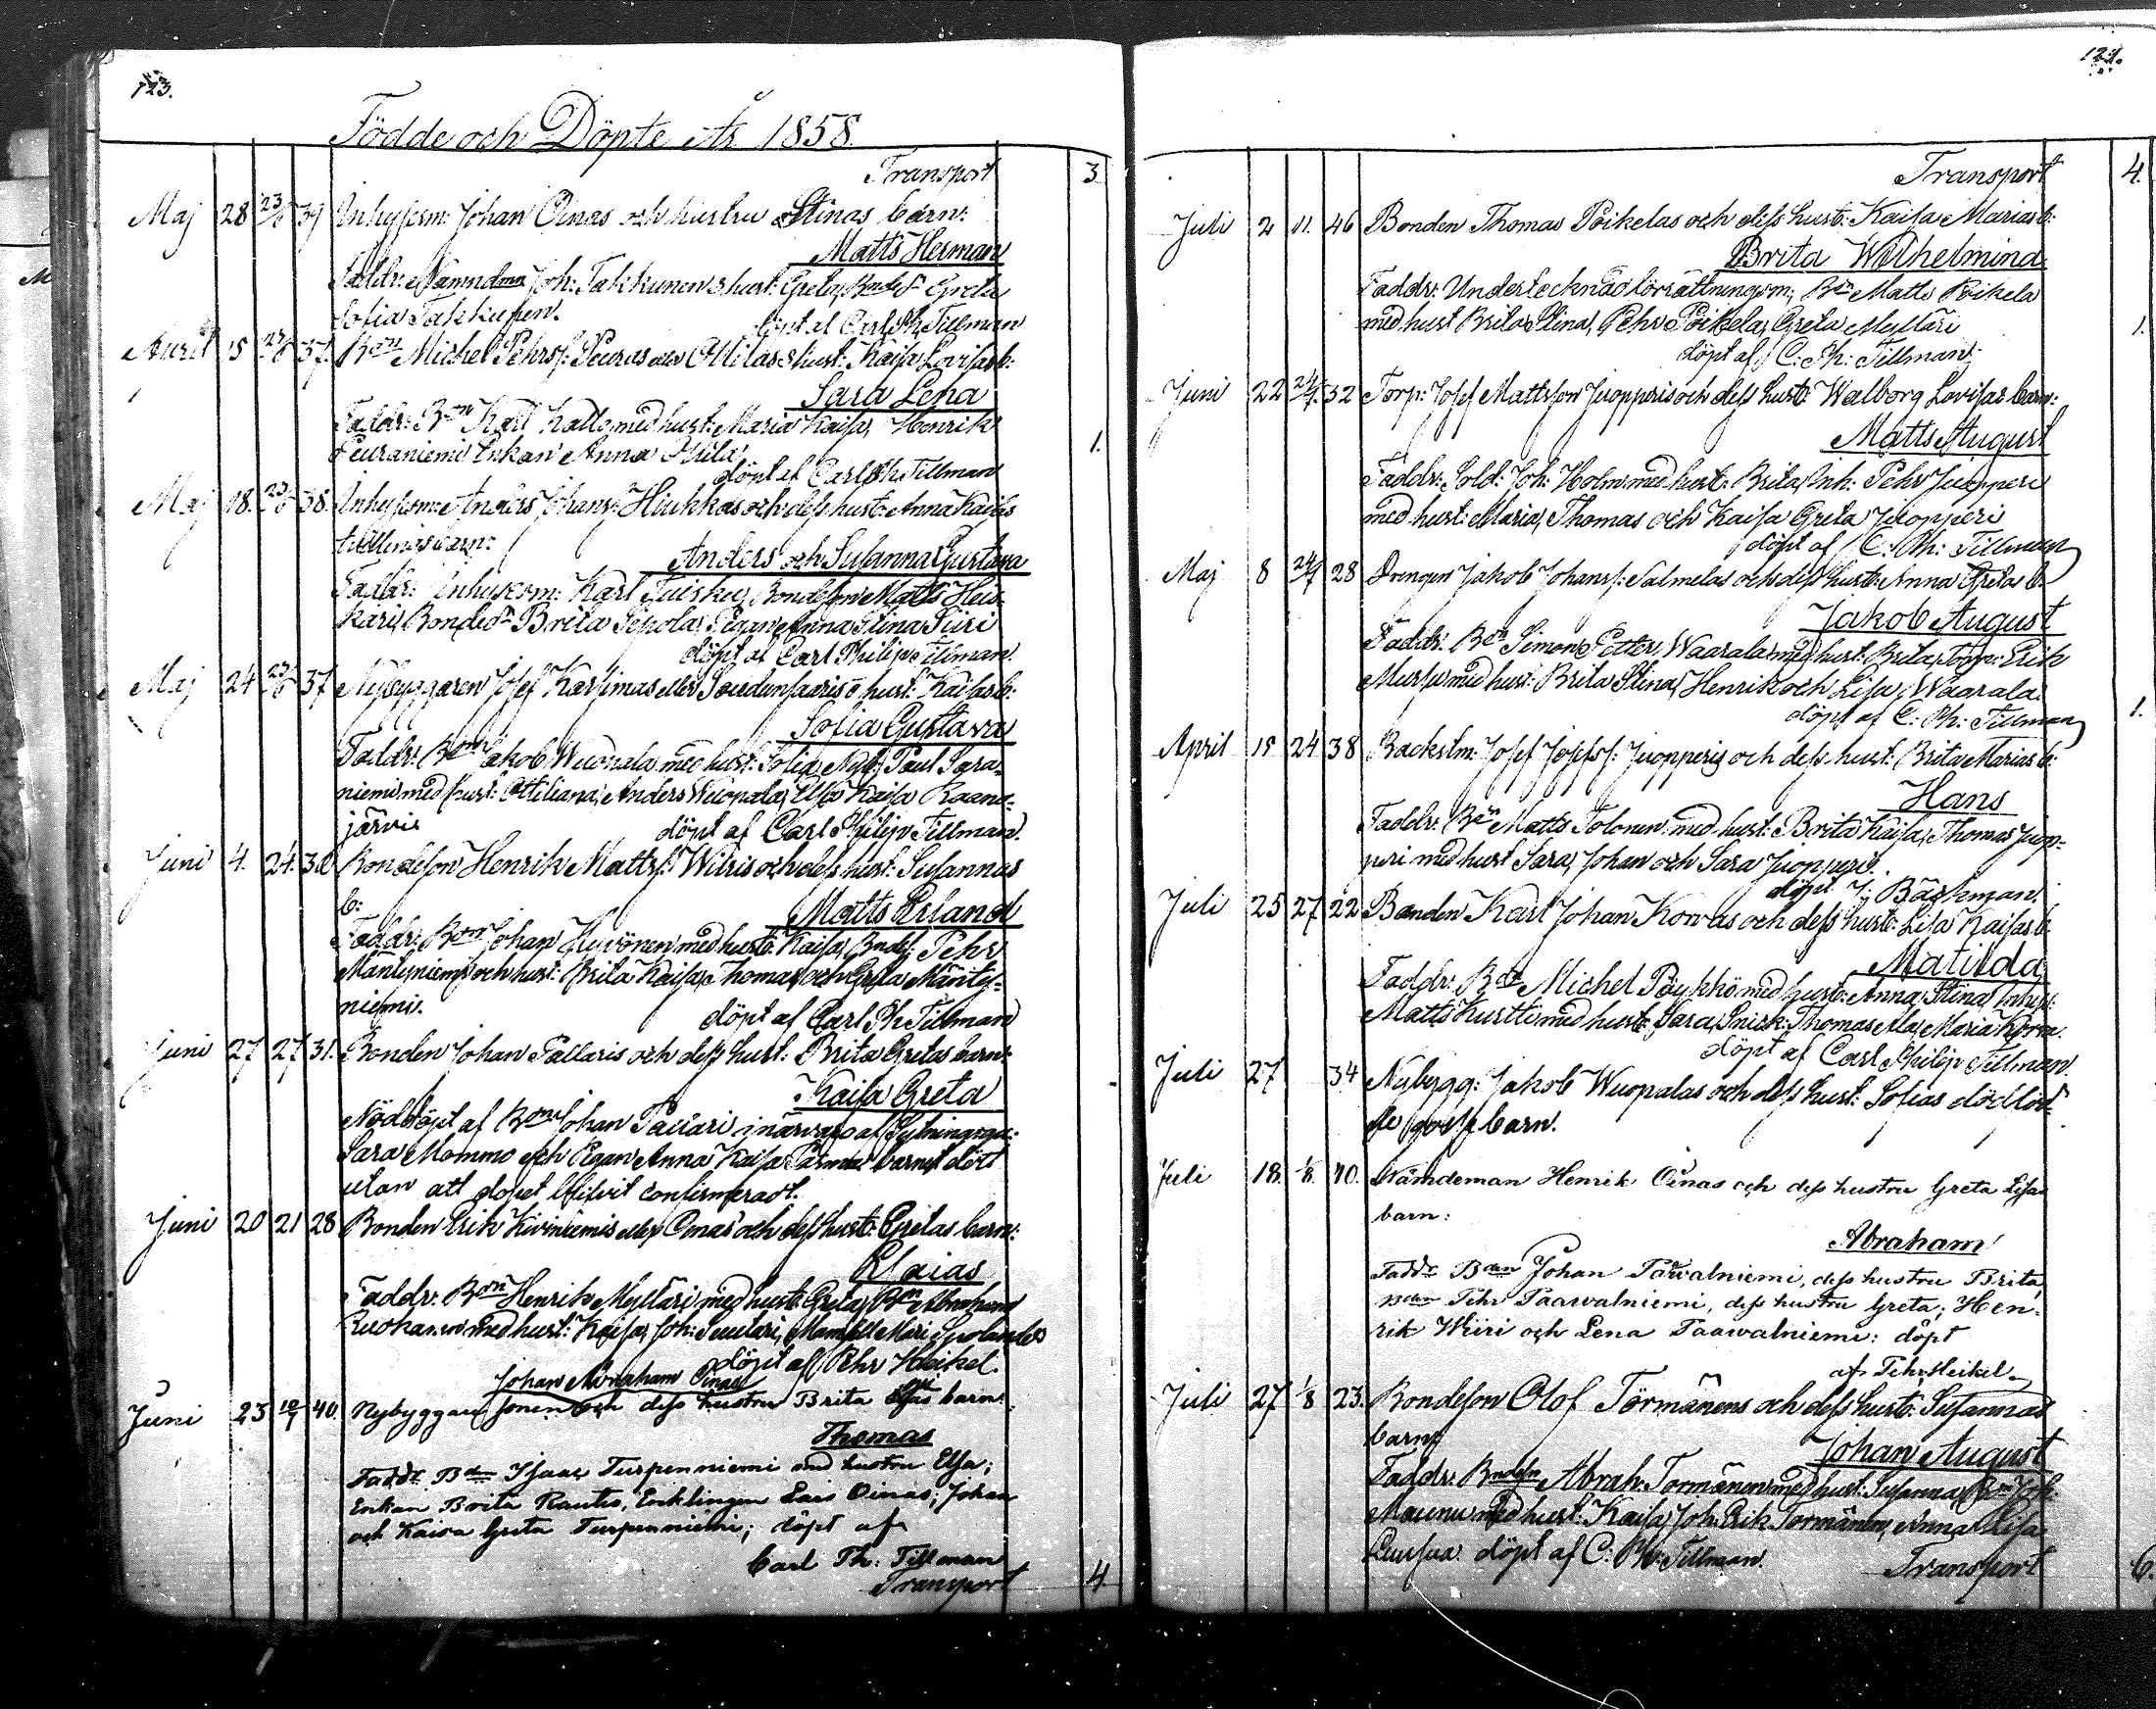 123.
Födde och Döpte År 1858.
Transport 3
Maj 28 23/6 39 Inhysesm: Johan Oinas och hustru Stinas barn:
Matts Herman
Faddr: Nämndman Joh: Takkunen & hust: Greta, Greta
Sofia Takkunen.
döpt af Carl Ph Tillman
April 15 37. Michel Pehrss: Peuras eller Ollilas & hust: Kaisa Lovisas b:
Sara Lena
Faddr: Bon Karl Kallo med hust: Maria Kaisa, Henrik
Peuraniemi Enkan Anna Ollila 1.
döpt af Carl Ph Tillman
Maj 18. 38. Inhysesm: Anders Johans: Hiukkas och dess hust: Anna Kaisas
tvillingsbarn:
Anders och Susanna Gustava
Faddr: Inhysesm: Karl Bondeson Matts Hei-
käri, Bonded: Brita Sepola, Pigan Anna Stina Siiri
döpt af Carl Philip Tillman.
Maj 24 37 Nybyggaren Josef Karlimas eller & hust: Kaisas b:
Sofia Gustava
Faddr: Bon Jakob Wuopala med hust: Sofia, Nyb: Paul Sara-
niemi med hust: Ottiliana, Anders Wuopala, Elsa Kaisa Raana-
järvi
döpt af Carl Philip Tillman.
Juni 4. 24. Bondeson Henrik Mattss: och dess hust: Susannas
b:
Matts Erland
Faddr: Bon Johan Hyvönen med hust: Kaisa, Bndes: Pehr
Mäntyniemi och hust: Brita Kaisa, Thomas och Greta Mänty-
niemi.
döpt af Carl Ph Tillman
Juni 27 27 31. Bonden Johan Pallaris och dess hust: Brita Gretas barn:
Kaisa Greta
Nöddöpt af Bon Johan i närvaro af
Sara Mommo och Pigan Anna Kaisa barnet dött
utan att dopet blifvit confirmeradt.
Juni 20 21 28 Bonden Erik Kiviniemis eller Oinas och dess hust: Gretas barn:
Esaias
Faddr: Bon Henrik Myllari med hust: Greta, Bon Abraham
Ruokanen med hust: Kaisa, Joh: Mamsell Mari
döpt af Pehr Heikel.
Johan Abraham Oinas
Juni 23 10/7 40. Nybyggaren Jonen och dess hustru Brita Elsas barn:
Thomas
Faddr Bden Isaac Turpenniemi med hustru Elsa;
Enkan Brita Rautio, Enklingen Lars Oinas; Johan
och Kaisa Greta Turpenniemi; döpt af
Carl Ph: Tillman
Transport 4.
Transport 4.
Juli 2 11. 46 Bonden Thomas Poikelas och dess hust: Kaisa Marias b:
Brita Wilhelmina
Faddr: Undertecknad förrättningsm: Bon Matts Poikela
med hust Brita Stina, Pehr Poikela, Greta Myllari 1.
döpt af C: Ph: Tillman.
Juni 22 24/7. 32 Torp: Josef Mattsson Juopperis och dess hust: Walborg Lovisas barn:
Matts August
Faddr: Sold: Joh: Holm med hust: Brita, Inh: Pehr Juopperi
med hust: Maria, Thomas och Kaisa Greta Juopperi
döpt af C: Ph: Tillman
Maj 8 24/7 28 Drengen Jakob Johanss: Salmelas och dess hust: Anna Gretas b:
Jakob August
Faddr: Bon Simon Petter Waarala med hust: Brita, Torp: Erik
Mursu med hust: Brita Stina, Henrik och Lisa Waarala.
döpt af C: Ph: Tillman 1.
April 15 24 38 Backstm: Josef Josefss: Juopperis och dess hust: Brita Marias b:
Hans
Faddr: Bon Matts Tolonen med hust: Brita Kaisa, Thomas Juop-
peri med hust Sara, Johan och Sara Juopperi.
döpt J: Bäckman.
Juli 25 27 22 Bonden Karl Johan Kovas och dess hust: Lisa Kaisas b:
Matilda
Faddr: Bon Michel Pöykkö med hust: Anna Stina, Inhys:
Matts Kurtti med hust: Sara, Snick: Thomas Ala, Maria
döpt af Carl Philip Tillman.
Juli 27 34 Nybygg: Jakob Wuopalas och dess hust: Sofias dödföd-
de gosse barn.
Juli 18. 1/8. 40. Nämdeman Henrik Oinas och dess hustru Greta Lisas
barn:
Abraham
Faddr Bden Johan Paavalniemi, dess hustru Brita,
Bden Pehr Paavalniemi, dess hustru Greta; Hen-
rik Wiiri och Lena Paavalniemi: döpt
af Pehr Heikel
Juli 27 1/8 23. Bondeson Olof Törmänens och dess hust: Susannas
barn:
Johan August
Faddr: Abrah: Tormänen med hust: Susanna,
Maunu med hust: Kaisa, Joh: Erik Tormänen, Anna Lisa
döpt af C: Ph: Tillman. Transport 6.